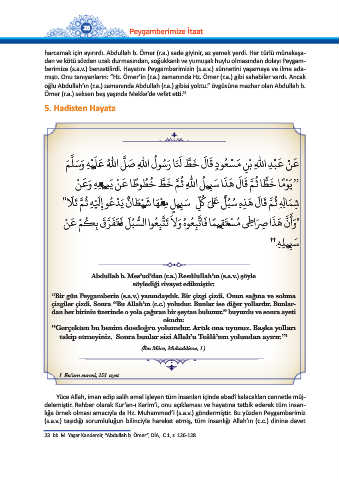 28
Peygamberimize İtaat
harcamak için ayırırdı. Abdullah b. Ömer (r.a.) sade giyinir, az yemek yerdi. Her türlü münakaşa-
dan ve kötü sözden uzak durmasından, soğukkanlı ve yumuşak huylu olmasından dolayı Peygam-
berimize (s.a.v.) benzetilirdi. Hayatını Peygamberimizin (s.a.v.) sünnetini yaşamaya ve ilme ada-
mıştı. Onu tanıyanların: "Hz. Ömer'in (r.a.) zamanında Hz. Ömer (r.a.) gibi sahabiler vardı. Ancak
oğlu Abdullah'ın (r.a.) zamanında Abdullah (r.a.) gibisi yoktu." övgüsüne mazhar olan Abdullah b.
Ömer (r.a.) seksen beş yaşında Mekke'de vefat etti.
5. Hadisten Hayata
عَنْ عَبْدِ اللهِ بْنِ مَسْعُودٍ قَالَ خَطَّ لَنَا رَسُولُ اللهِ صَلَّى اللهُ عَلَيْهِ وَسَلَّمَ
"يَوْمًا خَطًّا ثُمَّ قَالَ هَذَا سَبِيلُ اللهِ ثُمَّ خَطَّ خُطُوطًا عَنْ يَمِينِهِ وَعَنْ
شِمَالِهِ ثُمَّ قَالَ هَذِهِ سُبُلٌ عَلَى كُلِّ سَبِيلٍ مِنْهَا شَيْطَانٌ يَدْعُو إِلَيْهِ ثُمَّ تَلَا"
"وَأَنَّ هَذَا صِرَاطِي مُسْتَقِيمًا فَاتَّبِعُوهُ وَلاَ تَتَّبِعُوا السُّبُلَ فَتَفَرَّقَ بِكُمْ عَنْ
سَبِيلِهِ"
Abdullah b. Mes'ud'dan (r.a.) Resûlullah'ın (s.a.v.) şöyle
söylediği rivayet edilmiştir:
"Bir gün Peygamberin (s.a.v.) yanındaydık. Bir çizgi çizdi. Onun sağına ve soluna
çizgiler çizdi. Sonra "Bu Allah'ın (c.c.) yoludur. Bunlar ise diğer yollardır. Bunlar-
dan her birinin üzerinde o yola çağıran bir şeytan bulunur." buyurdu ve sonra ayeti
okudu:
"Gerçekten bu benim dosdoğru yolumdur. Artık ona uyunuz. Başka yolları
takip etmeyiniz. Sonra bunlar sizi Allah'u Teâlâ'nın yolundan ayırır."¹
(İbn Mâce, Mukaddime, 1)
1 En'am suresi, 153. ayet
Yüce Allah, iman edip salih amel işleyen tüm insanları içinde ebedî kalacakları cennetle müj-
delemiştir. Rehber olarak Kur'an-ı Kerim'i, onu açıklaması ve hayatına tatbik ederek tüm insan-
lığa örnek olması amacıyla da Hz. Muhammed'i (s.a.v.) göndermiştir. Bu yüzden Peygamberimiz
(s.a.v.) taşıdığı sorumluluğun bilinciyle hareket etmiş, tüm insanlığı Allah'ın (c.c.) dinine davet
bk. M. Yaşar Kandemir, "Abdullah b. Ömer", DİA, C 1, s. 126-128.